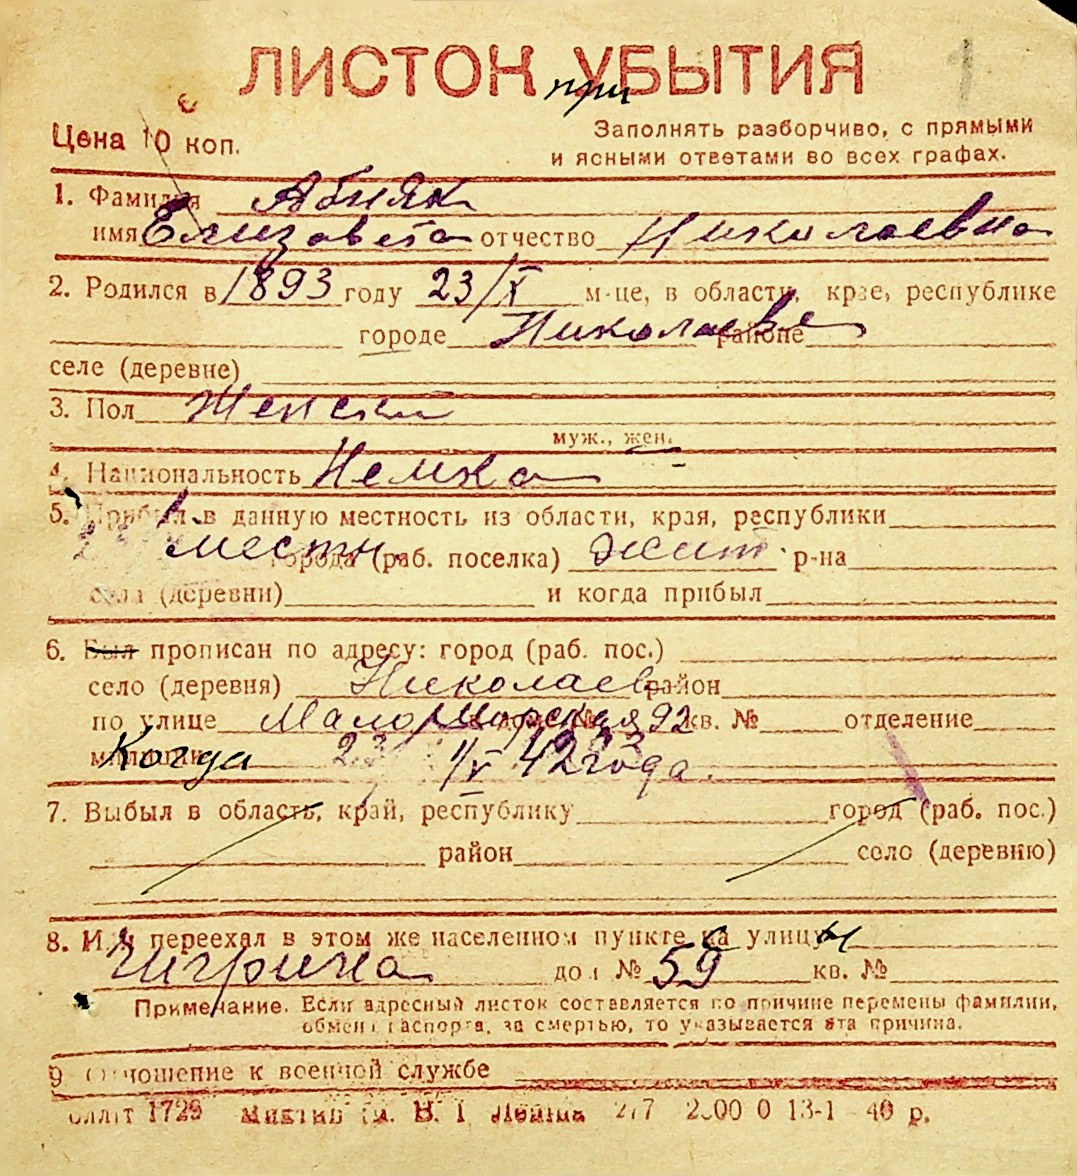 ЛИСТОК при УБЫТИЯ
1
Цена 10 коп.
Заполнять разборчиво, с прямыми
и ясными ответами во всех графах.
1. Фамилия Абияк
имя Елизавета отчество Николаевна
2. Родился в 1893 году 23/X м-це, в области, крае, республике
городе Николаеве районе
селе (деревне)
3. Пол Женский
муж., жен.
4. Национальность Немка
5. Прибыл в данную местность из области, края, республики
местн. города (раб. поселка) жит р-на
села (деревни) и когда прибыл
6. Был прописан по адресу: город (раб. пос.)
село (деревня) Николаев район
по улице Мало Морская 92 кв. № отделение
милиции Когда 42 года.
7. Выбыл в область, край, республику город (раб. пос.)
район село (деревню)
8. Или переехал в этом же населенном пункте на улицу
Чигрина дом № 59 кв. №
Примечание. Если адресный листок составляется по причине перемены фамилии,
обмена паспорта, за смертью, то указывается эта причина.
9 Отношение к военной службе
1729 13-1 40 р.